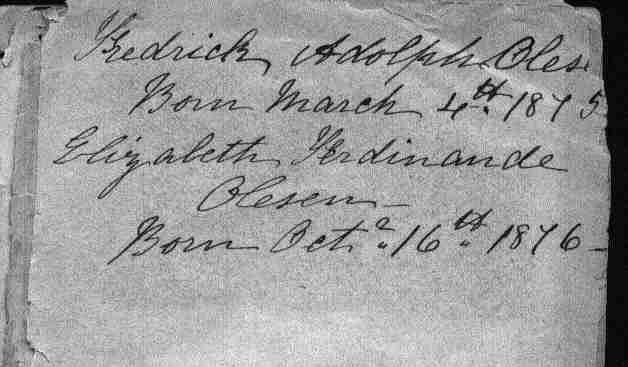 Fredrick Adolph Oles
Born March 4th 1875
Elizabeth Ferdinande
Olesen
Born Oct. 16th 1876